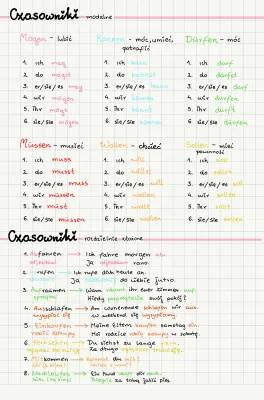 Czasowniki modalne
Mögen - lubić
Können - móc, umieć, potrafić
Dürfen - móc
1. ich mag
2. du magst
3. er/sie/es mag
4. wir mögen
5. ihr mögt
6. sie/Sie mögen
1. ich kann
2. du kannst
3. er/sie/es kann
4. wir können
5. ihr könnt
6. sie/Sie können
1. ich darf
2. du darfst
3. er/sie/es darf
4. wir dürfen
5. ihr dürft
6. sie/Sie dürfen
Müssen - musieć
Wollen - chcieć
Sollen - mieć powinność
1. ich muss
2. du musst
3. er/sie/es muss
4. wir müssen
5. ihr müsst
6. sie/Sie müssen
1. ich will
2. du willst
3. er/sie/es will
4. wir wollen
5. ihr wollt
6. sie/Sie wollen
1. ich soll
2. du sollst
3. er/sie/es soll
4. wir sollen
5. ihr sollt
6. sie/Sie sollen
Czasowniki rozdzielnie złożone
1. Abfahren → Ich fahre morgen ab.
Ja rano.
2. rufen → Ich rufe dich heute an.
Ja do ciebie jutro.
3. Aufräumen → Wann räumt ihr euer Zimmer auf?
Kiedy swój pokój?
4. Ausschlafen → Am Wochenende schlafen wir aus.
wyspać się W weekend się wysypiamy.
5. Einkaufen → Meine Eltern kaufen samstag ein.
robić zakupy Moi rodzice robią zakupy w sobotę.
6. Fernsehen → Du siehst zu lange fern.
Za długo
7. Mitkommen → Kommst du mit?
8. → Ein Hund läuft dir nach.
za tobą jakiś pies.